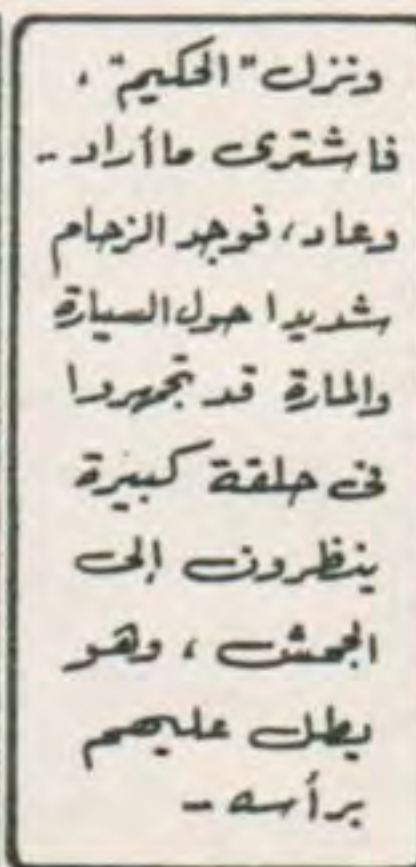 ونزل "الحكيم"،
فاشترى ما أراد --
وعاد، فوجد الزحام
شديدا حول السيارة
والمارة قد تجمهروا
فى حلقة كبيرة
ينظرون إلى
الجحش، وهو
يطل عليهم
برأسه --